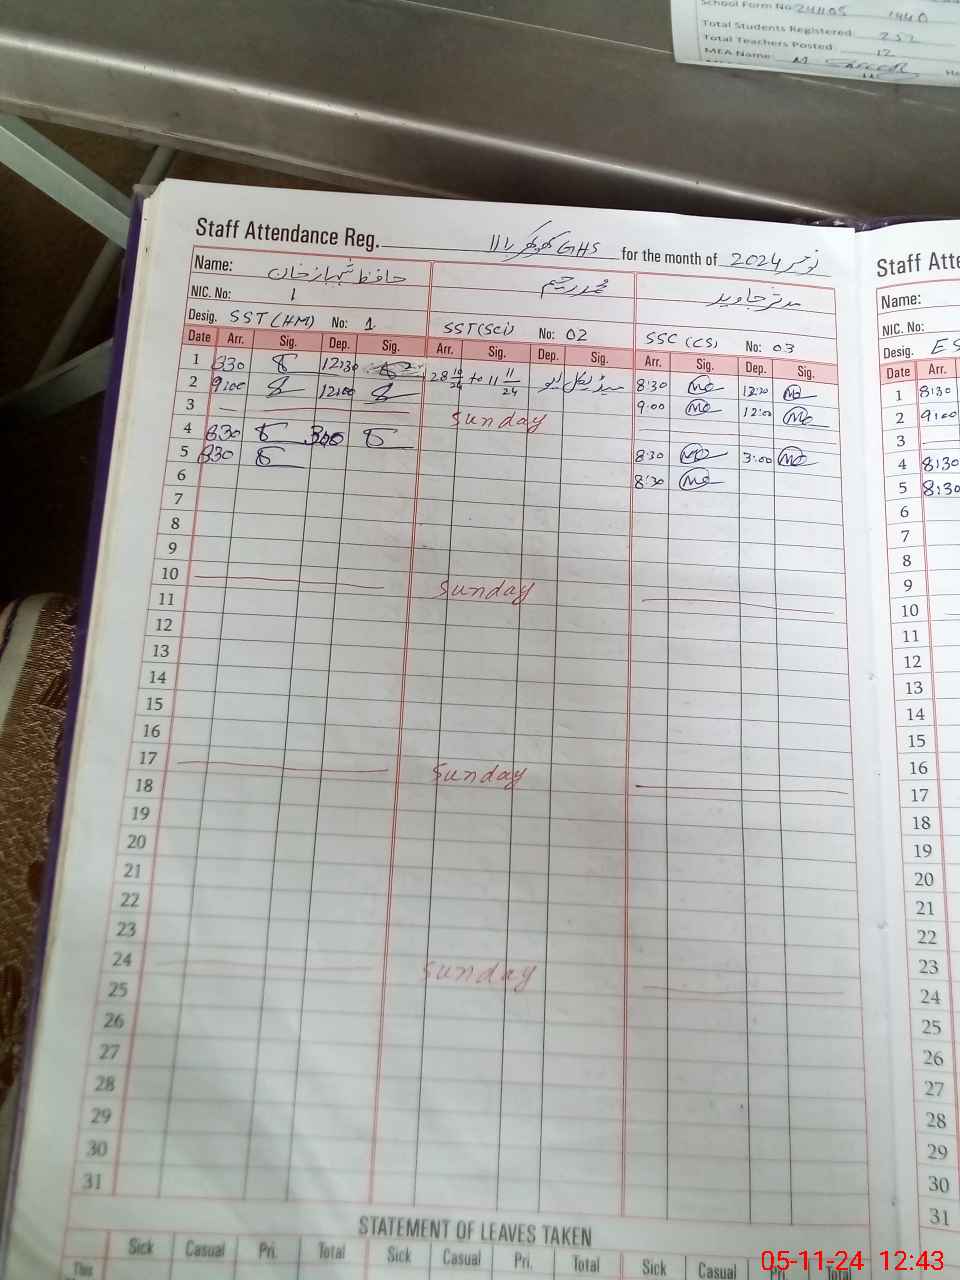 School Form No 24405 1440
Total Students Registered: 252
Total Teachers Posted: 12
MEA Name: M
Staff Attendance Reg. GHS for the month of نومبر 2024
Staff Atte
Name: حافظ شہباز خان محمد رحیم مدثر جاوید
Name:
NIC. No: 1
NIC. No:
Desig. SST (HM) No: 1 SST (Sci) No: 02 SSC (CS) No: 03
Desig. ES
Date Arr. Sig. Dep. Sig. Arr. Sig. Dep. Sig. Arr. Sig. Dep. Sig.
Date Arr.
1 830 12:30 28 10/24 to 11 11/24 میڈیکل لیو 8:30 12:30
1 8:30
2 9:00 12:00 9:00 12:00
2 9:00
3 Sunday
3
4 830 300 8:30 3:00
4 8:30
5 830 8:30
5 8:30
6
6
7
7
8
8
9
9
10 Sunday
10
11
11
12
12
13
13
14
14
15
15
16
16
17 Sunday
17
18
18
19
19
20
20
21
21
22
22
23
23
24 Sunday
24
25
25
26
26
27
27
28
28
29
29
30
30
31
31
STATEMENT OF LEAVES TAKEN
This Sick Casual Pri. Total Sick Casual Pri. Total Sick Casual Pri. Total
05-11-24 12:43